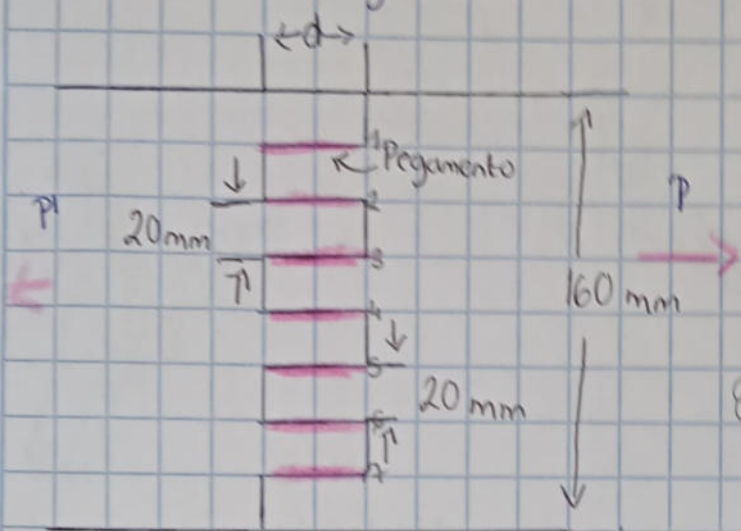 d
1
Pegamento
2
P
P
20mm
3
160 mm
4
5
20 mm
6
7